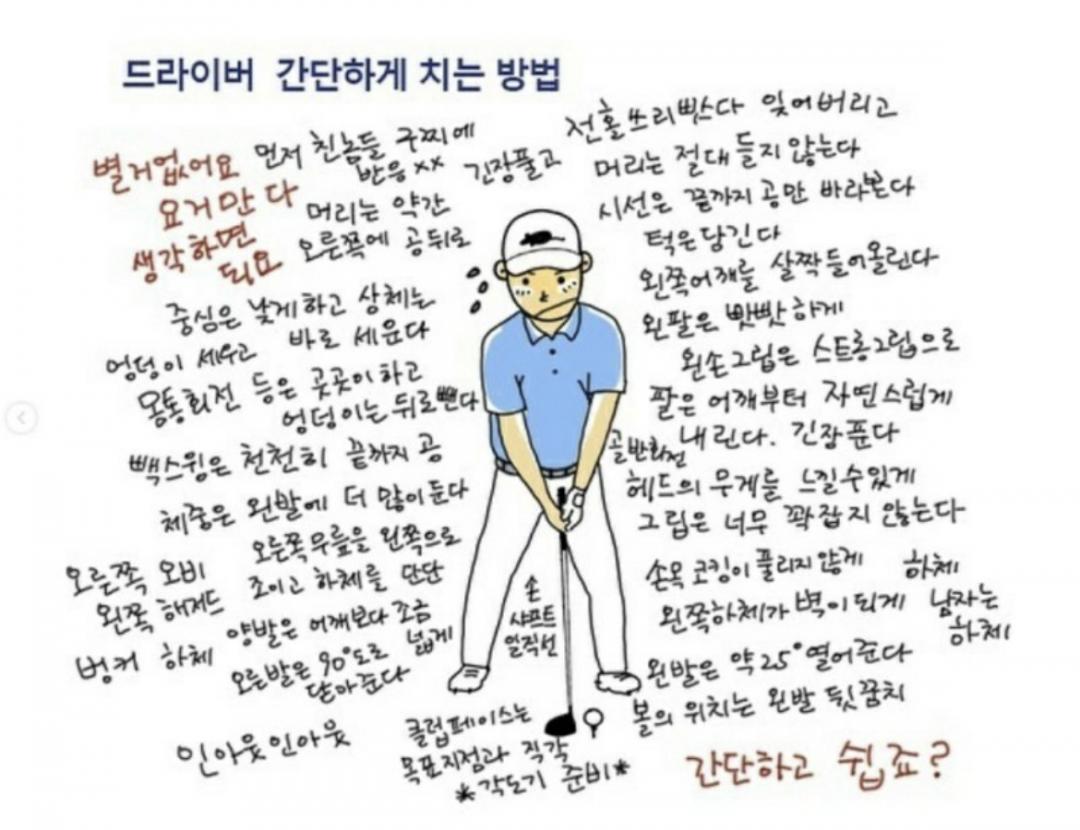 드라이버 간단하게 치는 방법
별거없어요
요거만 다
생각하면
되요
먼저 친놈들 구찌에
반응xx 긴장풀고
머리는 약간
오른쪽에 공뒤로
중심은 낮게하고 상체는
바로 세운다
엉덩이 세우고
몸통회전 등은 곳곳이하고
엉덩이는 뒤로뺀다
빽스윙은 천천히 끝까지 공
체중은 왼발에 더 많이 둔다
오른쪽무릎을 왼쪽으로
조이고 하체를 단단
오른쪽 오비
왼쪽 해저드
벙커 하체
양발은 어깨보다 조금
넓게
오른발은 90°도로
닫아준다
인아웃인아웃
전홀쓰리빳스다 잊어버리고
머리는 절대 들지 않는다
시선은 끝까지 공만 바라본다
턱은당긴다
왼쪽어깨를 살짝들어올린다
왼팔은 빳빳하게
왼손그립은 스트롱그립으로
팔은 어깨부터 자연스럽게
내린다. 긴장푼다
골반회전
헤드의 무게를 느낄수있게
그립은 너무 꽉잡지 않는다
손목 코킹이 풀리지않게
하체
왼쪽하체가 벽이되게
남자는
하체
왼발은 약25°열어준다
볼의 위치는 왼발 뒷꿈치
손
샤프트
일직선
클럽페이스는
목표지점과 직각
*각도기 준비*
간단하고 쉽죠?